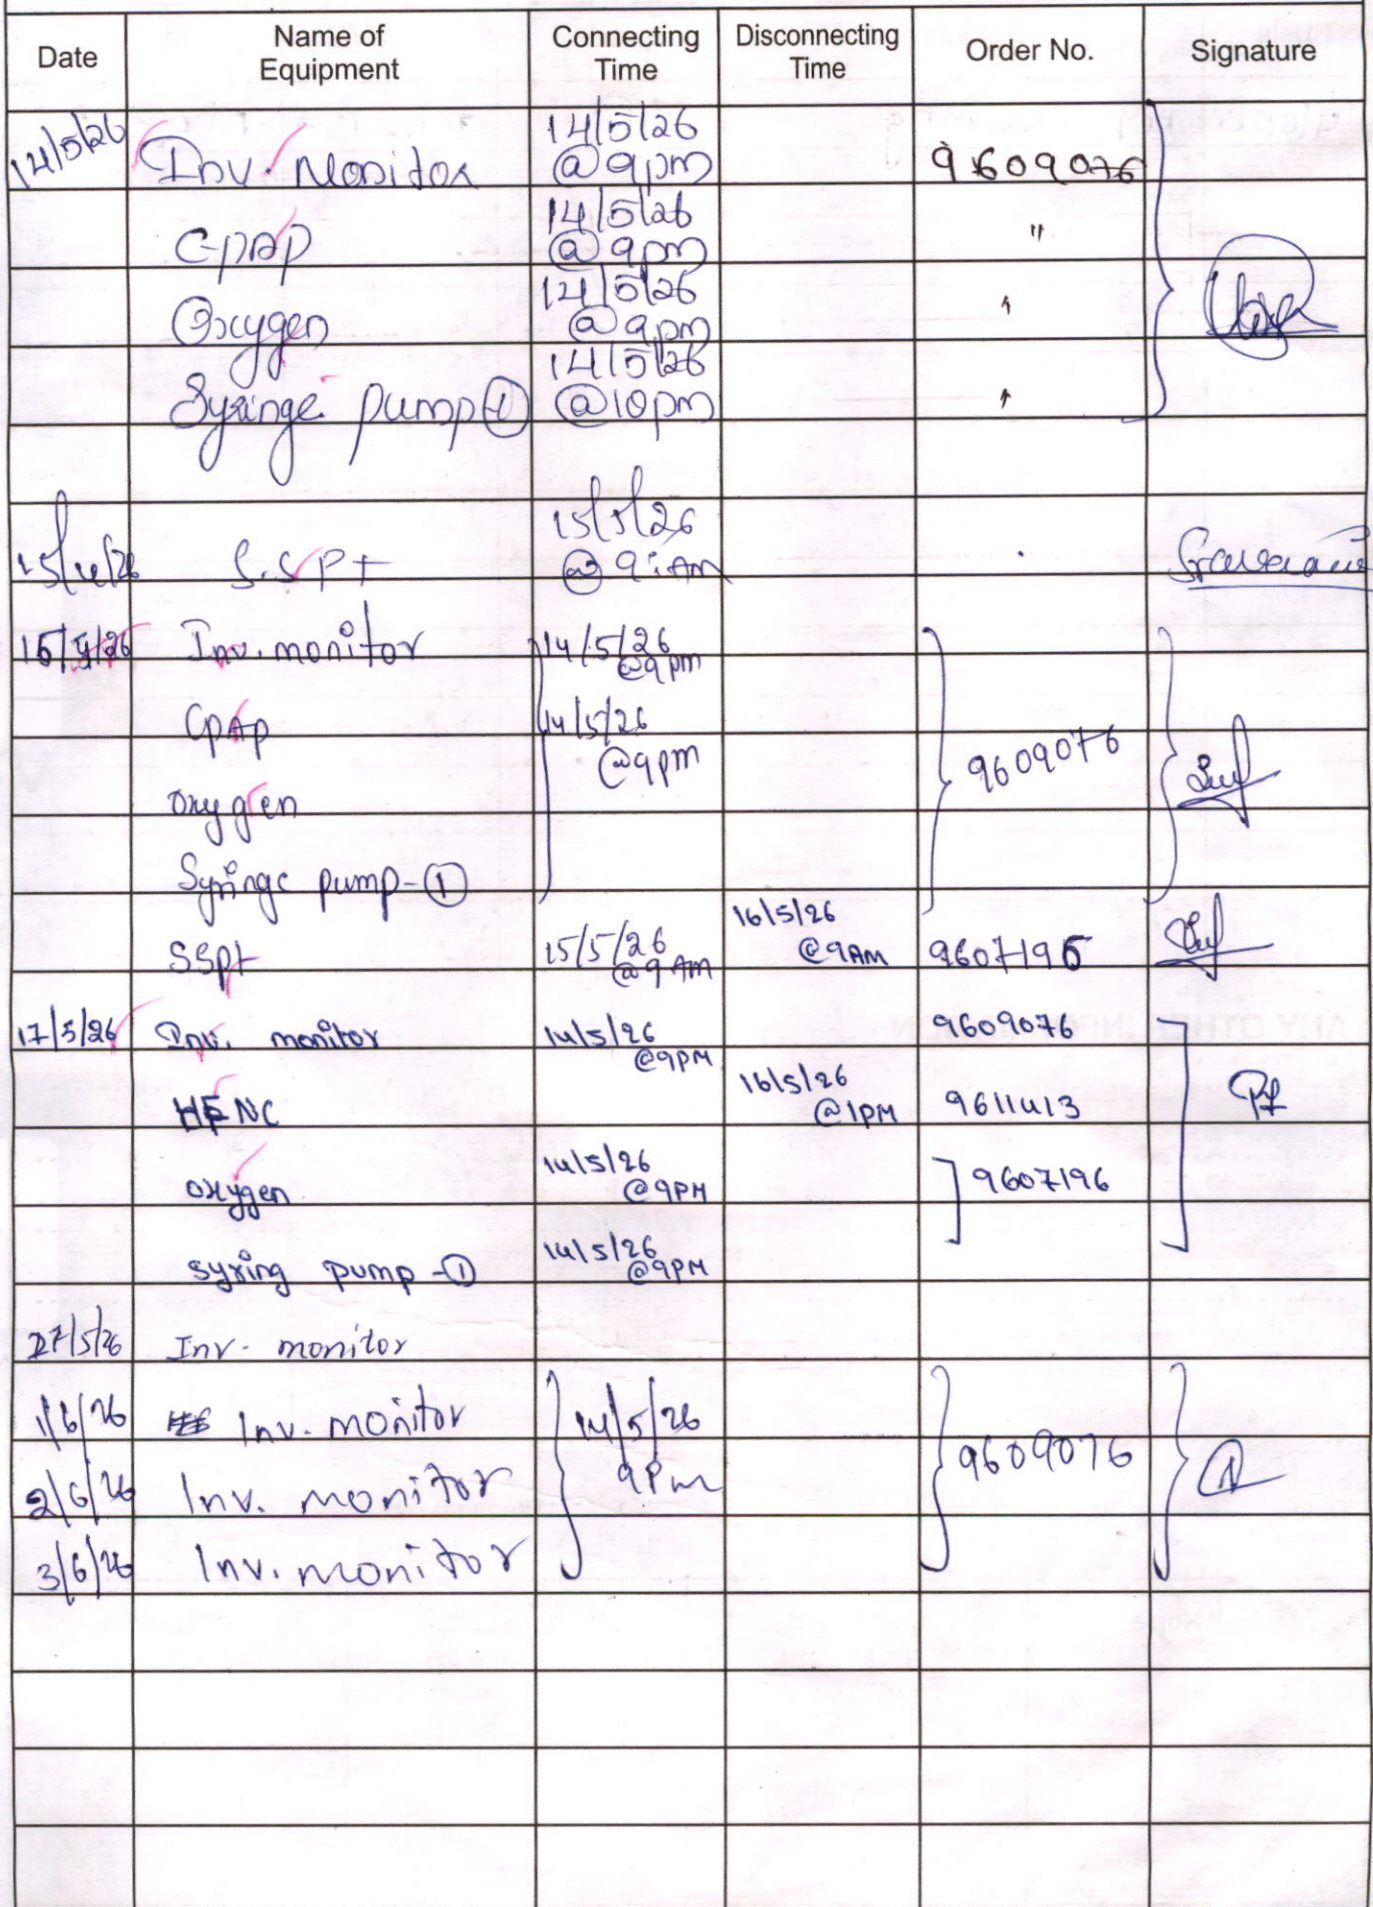 Date Name of Equipment Connecting Time Disconnecting Time Order No. Signature
14/5/26 Inv. Monitor 14/5/26 @ 9pm 9609076
C-PAP 14/5/26 @ 9pm "
Oxygen 14/5/26 @ 9pm "
Syringe pump-1 14/5/26 @ 10pm "
S.SPT 15/5/26 @ 9:AM
Inv. monitor 14/5/26 @9pm
CPAP 14/5/26 @9pm 9609076
oxygen
Syringe pump-1
SSPT 15/5/26 @ 9 AM 16/5/26 @9AM
17/5/26 Inv. monitor 14/5/26 @9PM 9609076
HFNC 16/5/26 @1PM 9611413
oxygen 14/5/26 @9PM 9607196
syring pump -1 14/5/26 @9PM
27/5/26 Inv. monitor
1/6/26 Inv. monitor 14/5/26 9pm 9609076
2/6/26 Inv. monitor
3/6/26 Inv. monitor